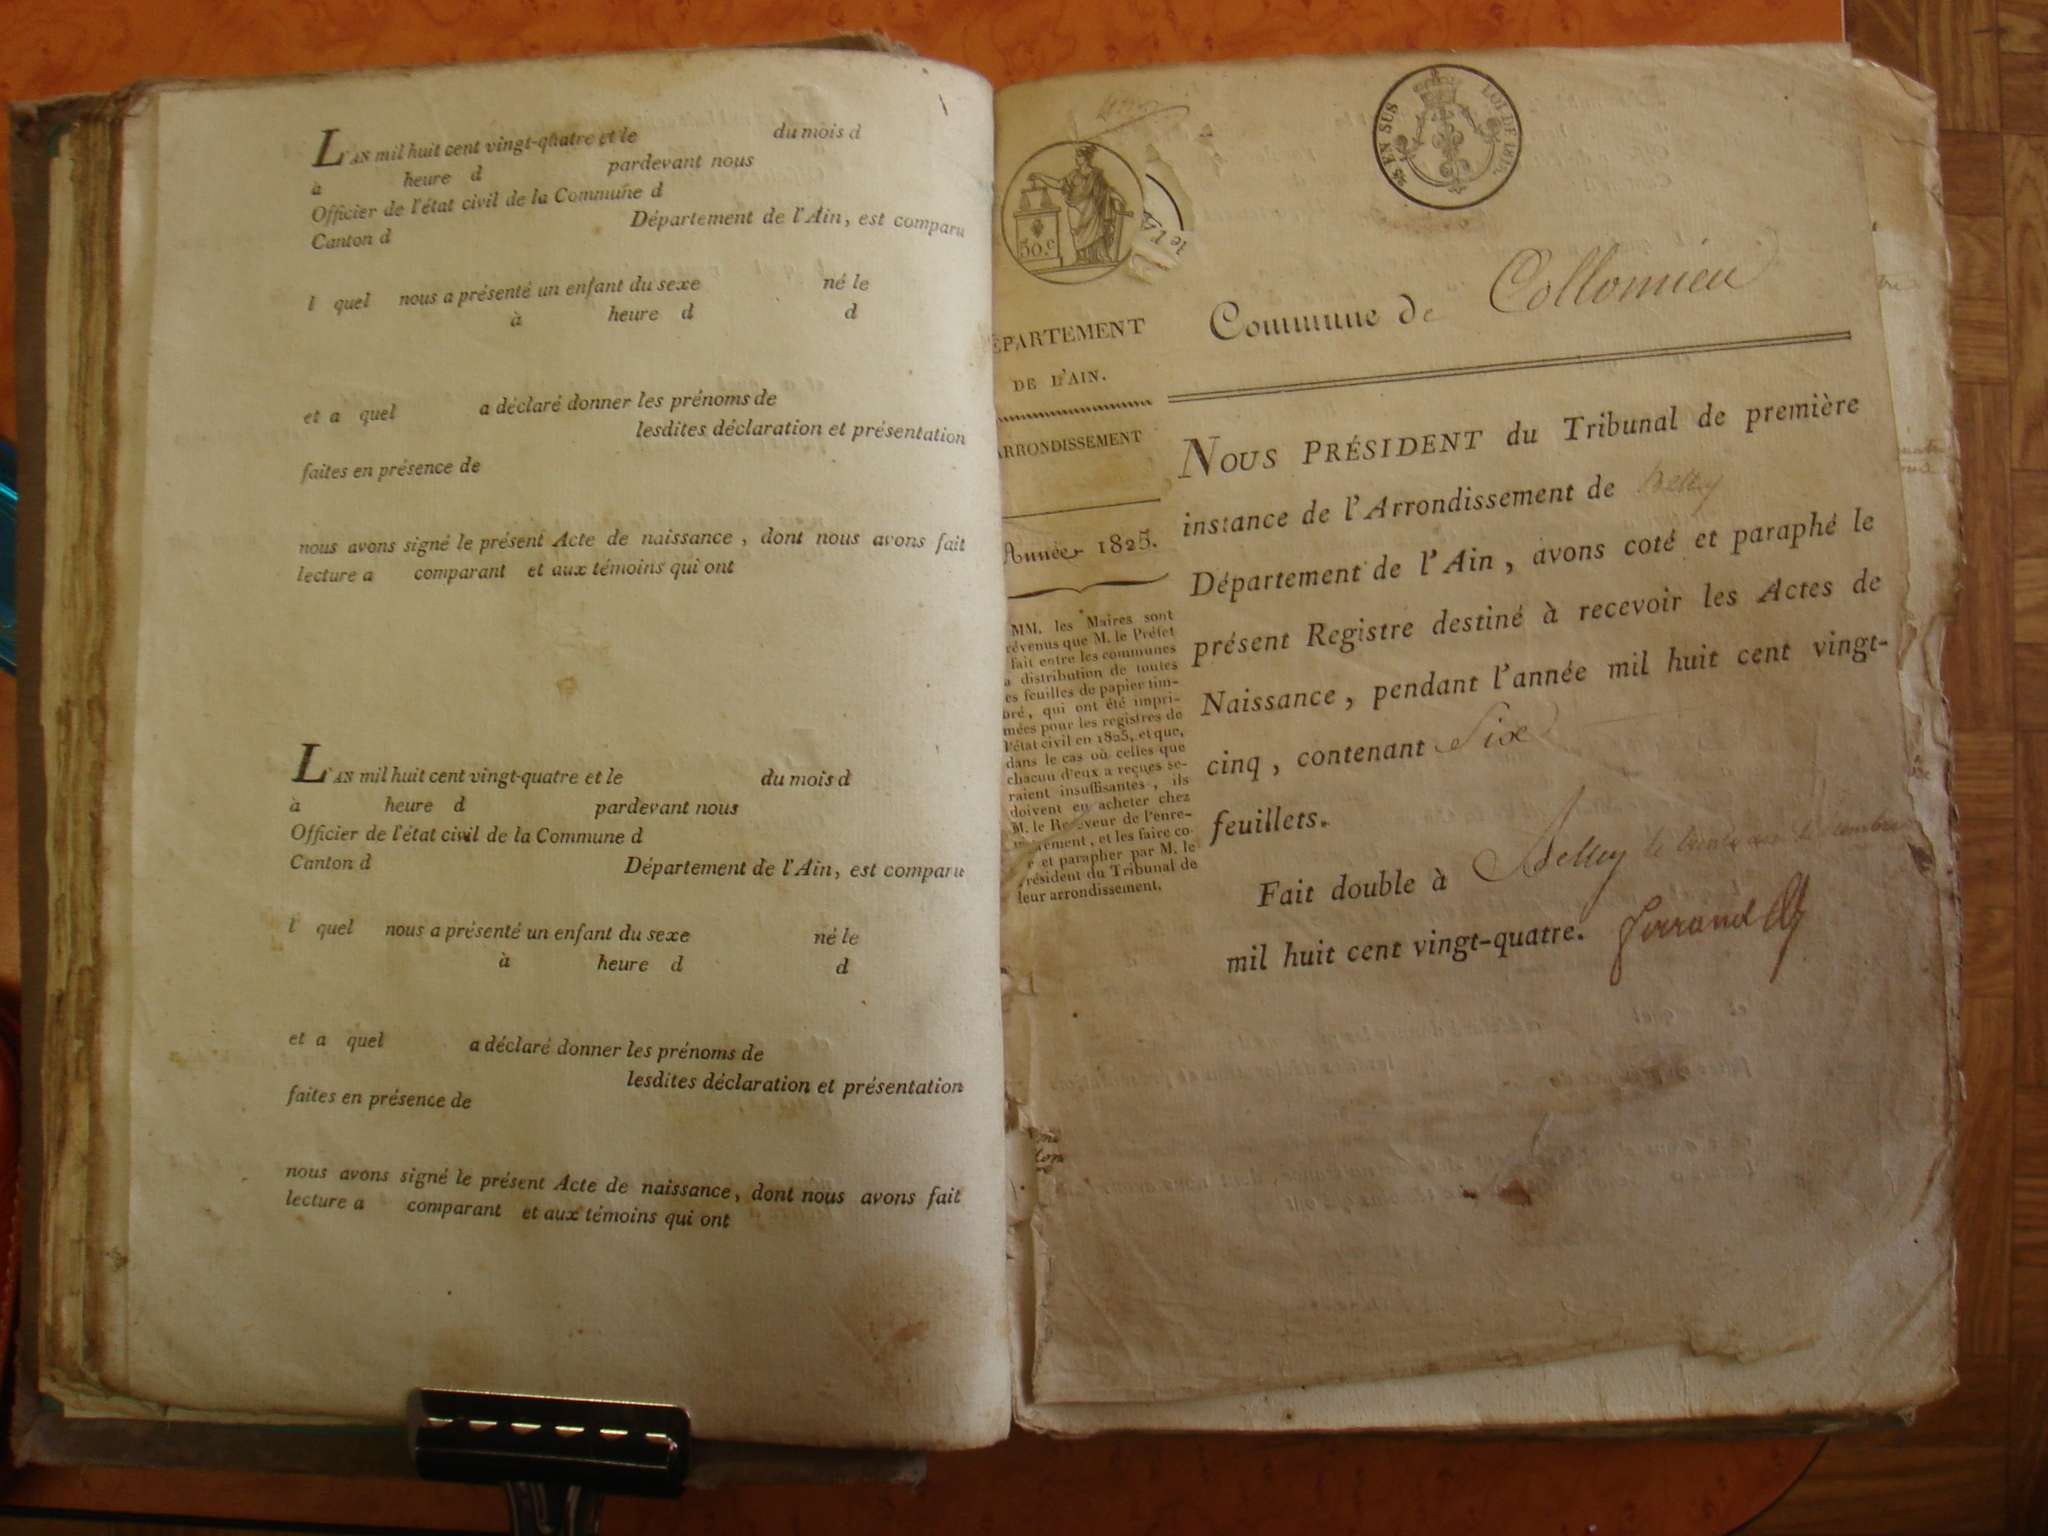 L'AN mil huit cent vingt-quatre et le du mois d
à heure d pardevant nous
Officier de l'état civil de la Commune d
Canton d Département de l'Ain, est comparu
l quel nous a présenté un enfant du sexe né le
à heure d d
et a quel a déclaré donner les prénoms de
lesdites déclaration et présentation
faites en présence de
nous avons signé le présent Acte de naissance, dont nous avons fait
lecture a comparant et aux témoins qui ont
L'AN mil huit cent vingt-quatre et le du mois d
à heure d pardevant nous
Officier de l'état civil de la Commune d
Canton d Département de l'Ain, est comparu
l quel nous a présenté un enfant du sexe né le
à heure d d
et a quel a déclaré donner les prénoms de
lesdites déclaration et présentation
faites en présence de
nous avons signé le présent Acte de naissance, dont nous avons fait
lecture a comparant et aux témoins qui ont
50.c
EN SUS LOI DE
ÉPARTEMENT
DE L'AIN.
ARRONDISSEMENT
Année 1825.
MM. les Maires sont
révenus que M. le Préfet
fait entre les communes
a distribution de toutes
es feuilles de papier tim-
bré, qui ont été impri-
mées pour les registres de
l'état civil en 1825, et que,
dans le cas où celles que
chacun d'eux a reçues se-
raient insuffisantes, ils
doivent en acheter chez
M. le Receveur de l'enre-
rement, et les faire co
r et parapher par M. le
résident du Tribunal de
leur arrondissement.
Commune de Collomieu
NOUS PRÉSIDENT du Tribunal de première
instance de l'Arrondissement de Belley
Département de l'Ain, avons coté et paraphé le
présent Registre destiné à recevoir les Actes de
Naissance, pendant l'année mil huit cent vingt-
cinq, contenant Six
feuillets.
Fait double à Belley le trente
mil huit cent vingt-quatre. Ferrand